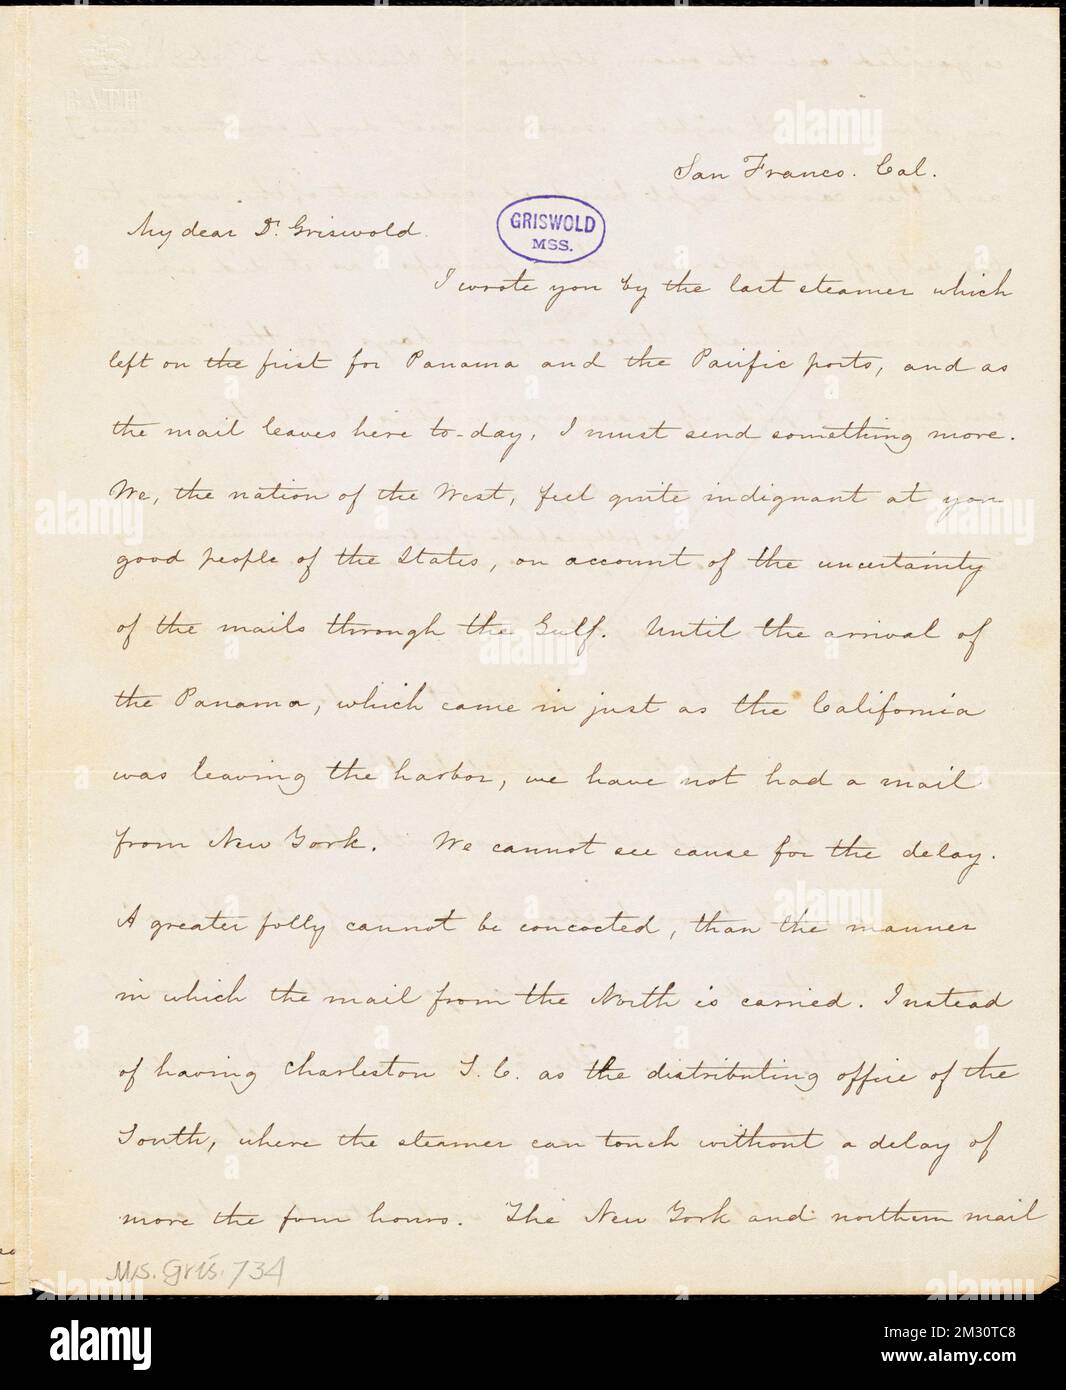 San Franco. Cal.
My dear Dr. Griswold.
GRISWOLD
MSS.
I wrote you by the last steamer which
left on the first for Panama and the Pacific ports, and as
the mail leaves here to-day, I must send something more.
We, the nation of the West, feel quite indignant at you
good people of the States, on account of the uncertainty
of the mails through the Gulf. Until the arrival of
the Panama, which came in just as the California
was leaving the harbor, we have not had a mail
from New York. We cannot see cause for the delay.
A greater folly cannot be concocted, than the manner
in which the mail from the North is carried. Instead
of having Charleston S.C. as the distributing office of the
South, where the steamer can touch without a delay of
more the four hours. The New York and northern mail
Ms. Gris. 734
alamy
Image ID: 2M30TC8
www.alamy.com